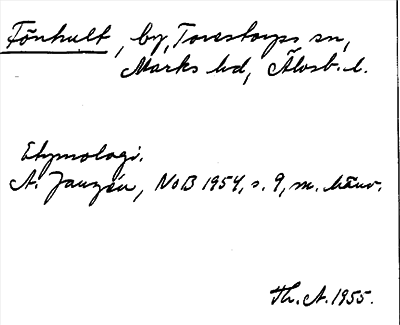 Fönhult, by, Torestorps sn,
Marks hd, Älvsb. l.
Etymologi.
A. Janzén, NoB 1954, s. 9, m. hänv.
Th. A. 1955.